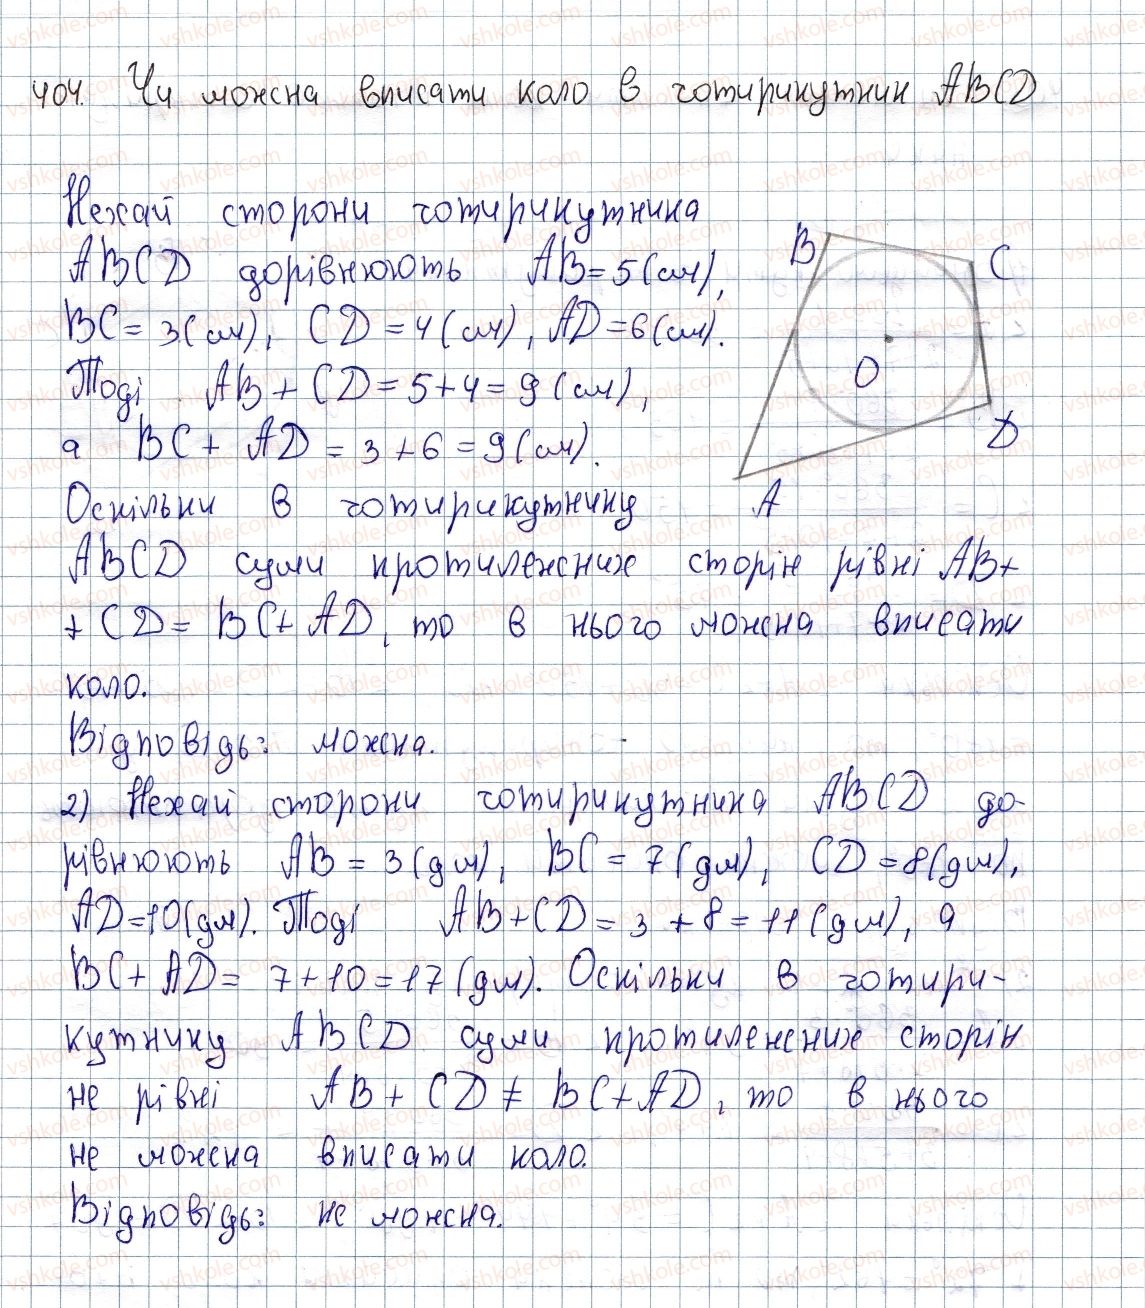 404. Чи можна вписати коло в чотирикутник ABCD
Нехай сторони чотирикутника
ABCD дорівнюють AB = 5 (см),
BC = 3 (см), CD = 4 (см), AD = 6 (см).
Тоді AB + CD = 5 + 4 = 9 (см),
а BC + AD = 3 + 6 = 9 (см).
Оскільки в чотирикутнику
ABCD суми протилежних сторін рівні AB +
+ CD = BC + AD, то в нього можна вписати
коло.
Відповідь: можна.
B
C
O
D
A
2) Нехай сторони чотирикутника ABCD до-
рівнюють AB = 3 (дм), BC = 7 (дм), CD = 8 (дм),
AD = 10 (дм). Тоді AB + CD = 3 + 8 = 11 (дм), а
BC + AD = 7 + 10 = 17 (дм). Оскільки в чотири-
кутнику ABCD суми протилежних сторін
не рівні AB + CD ≠ BC + AD, то в нього
не можна вписати коло.
Відповідь: не можна.
vshkole.com